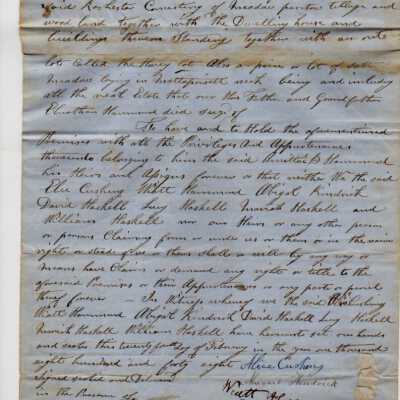 said Rochester Consisting of meadow pasture tillage and
wood land together with the Dwelling house and
buildings thereon Standing together with
lots called the
meadow lying in Mattapoisett neck being and including
all the real Estate that our Father and Grandfather
Elnathan Hammond died
To have and to Hold the aforementioned
Premises with all the Privileges and Appurtenances
thereunto belonging to him the said Hammond
his Heirs and Assigns forever so that neither We the said
Cushing Watt Hammond Abigal Kindrick
David Haskell Lucy Haskell Mariah Haskell and
William Haskell nor our Heirs or any other person
or persons Claiming from or under us or them or in the name
right or stead of us or them Shall or will by any way or
means have Claim or demand any right or title to the
aforesaid Premises or their Appurtenances or any part or parcel
thereof forever - In Witness whereof we the said Cushing
Watt Hammond Abigal Kindrick David Haskell Lucy Haskell
Mariah Haskell William Haskell have hereunto set our hands
and seals this twenty day of February in the year one thousand
eight hundred and forty eight Cushing
Signed sealed and Delivered
in the Presence of Watt